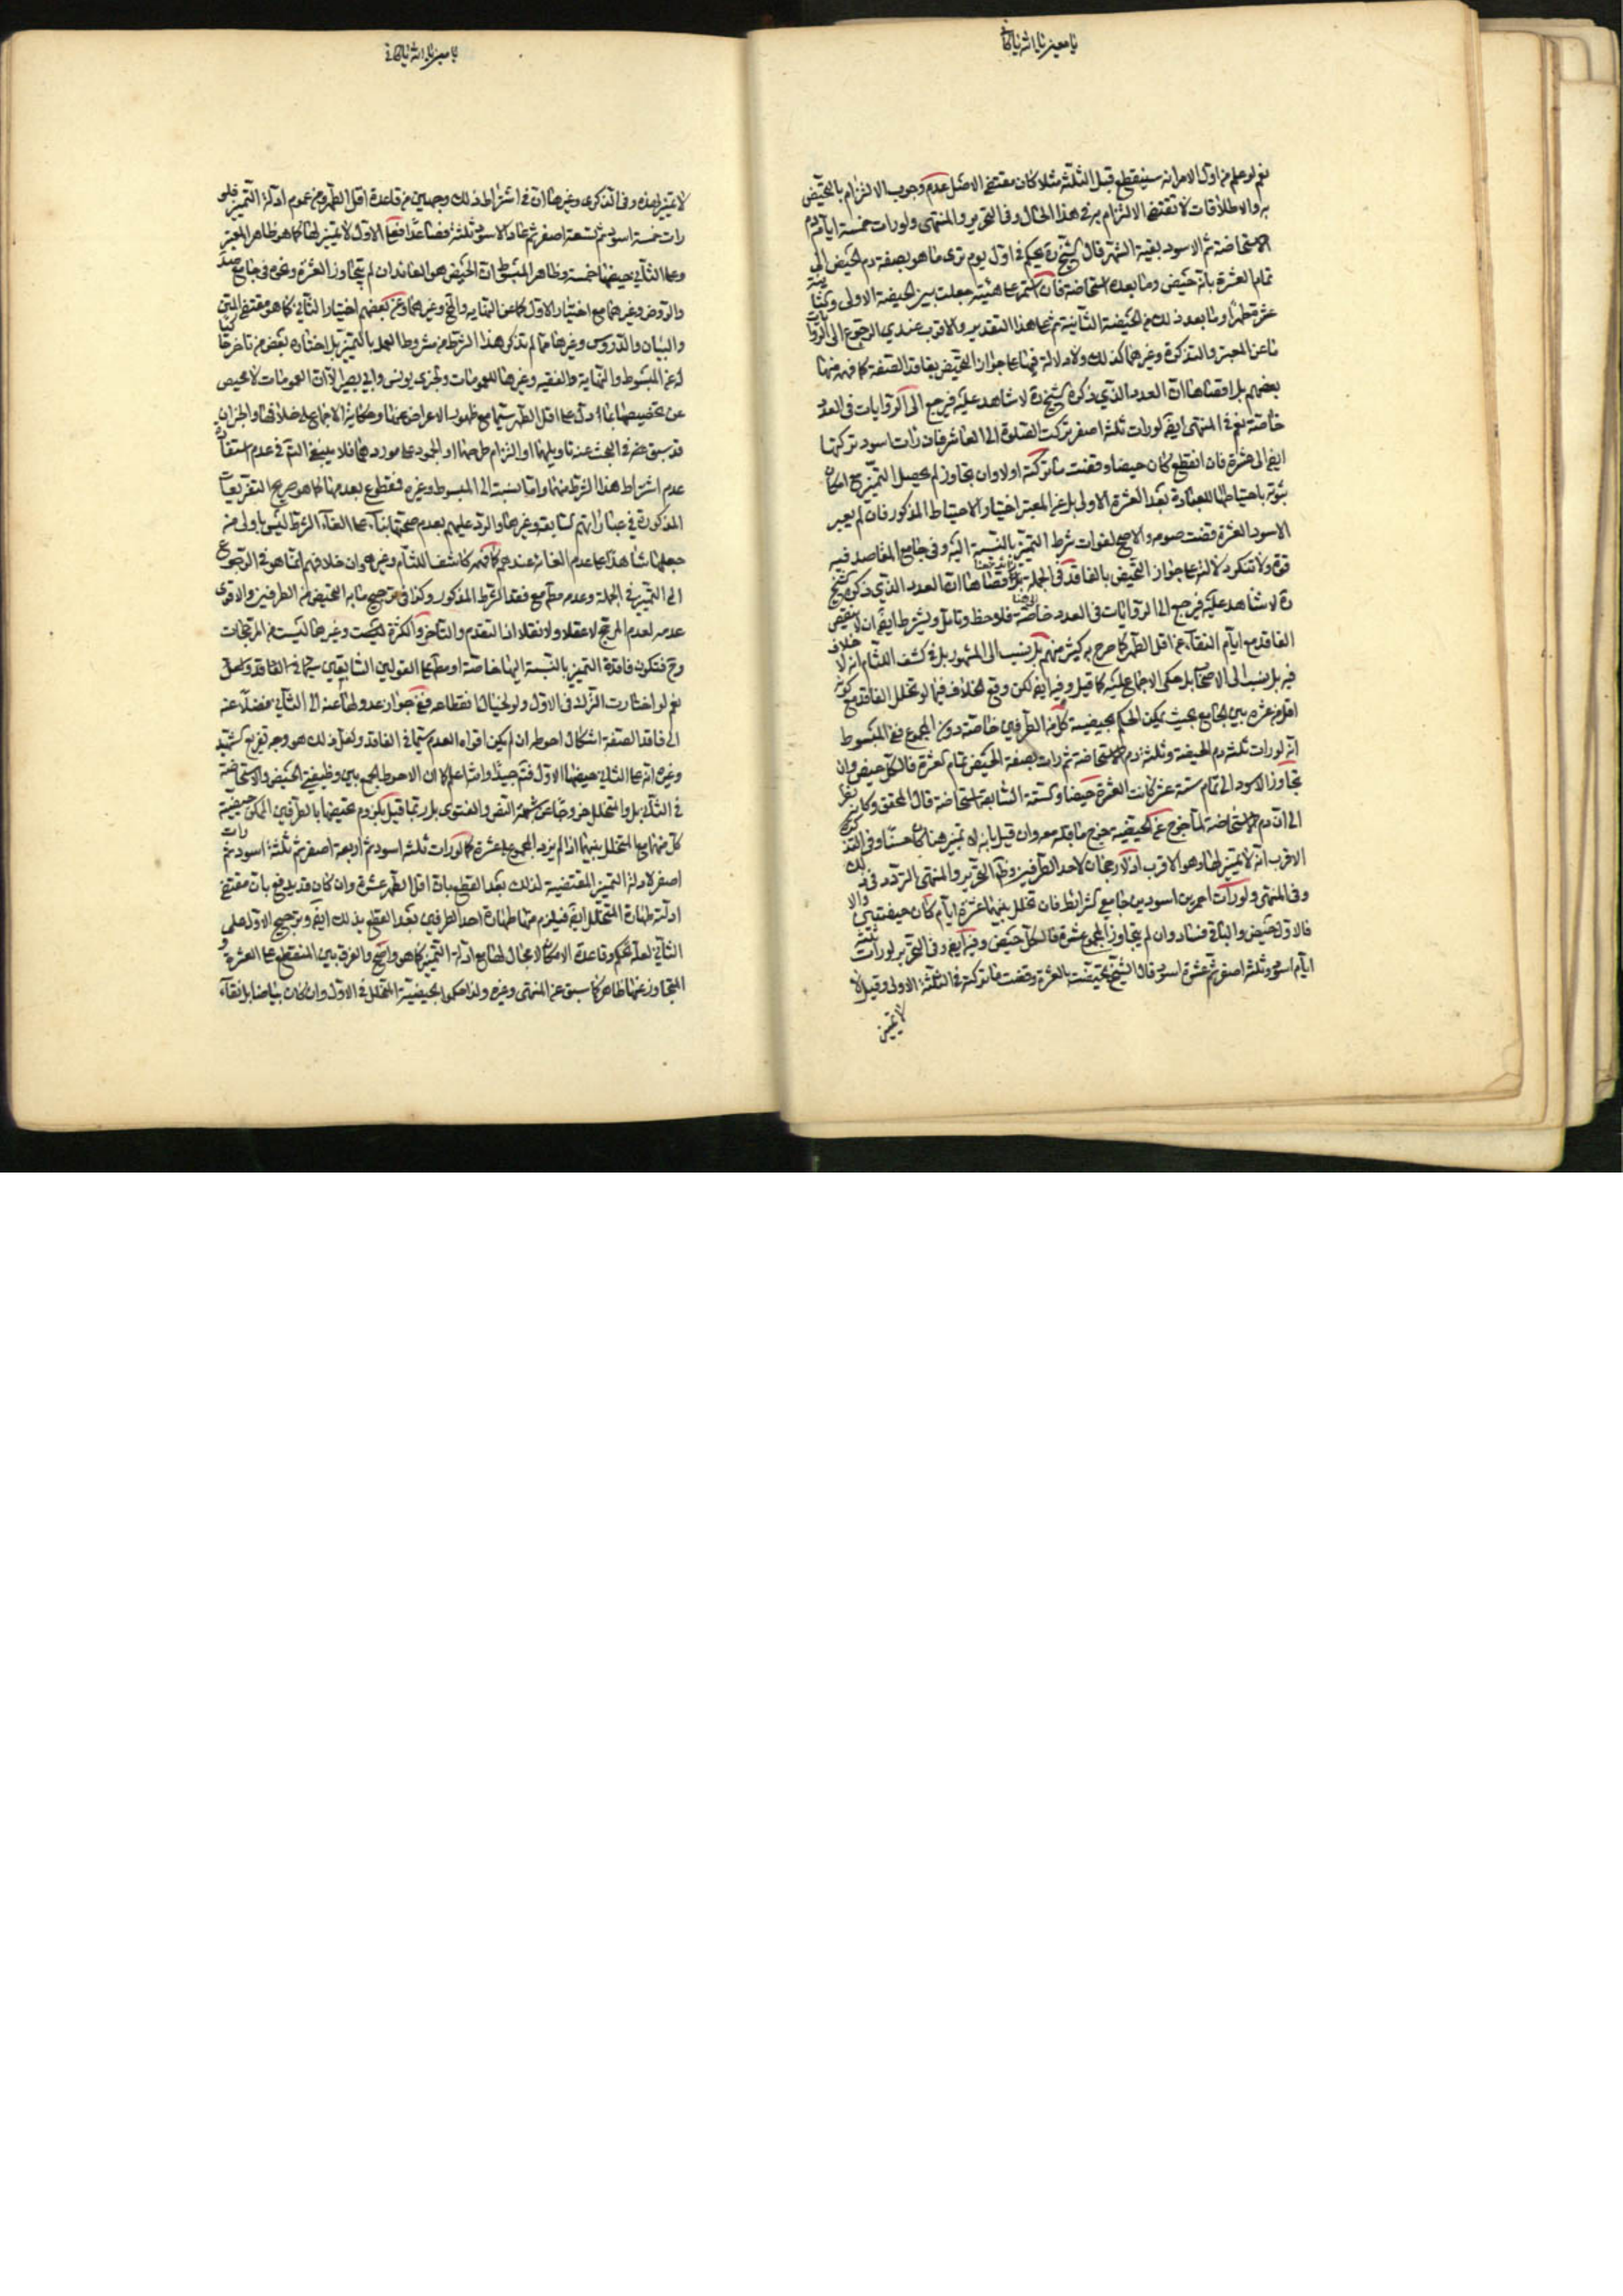 نعم لو علم من اول الامر انه سينقطع قبل الثلثة مثلا كان مقتضى الاصل عدم وجوب الالتزام بالتحيض
به والاطلاقات لا تقتضى الالتزام به فى هذا الحال وفى التحرير والمنتهى ولو رات خمسة ايام دم
الاستحاضة ثم الاسود بقية الشهر قال الشيخ ره يحكم فى اول يوم ترى ما هو بصفة دم الحيض الى
تمام العشرة بانه حيض وما بعده استحاضة فان استمر على هيئته جعلت بين الحيضة الاولى والثانية
عشرة طهرا وما بعد ذلك من الحيضة الثانية ثم على هذا التقدير والاقرب عندى الرجوع الى الروايات
ما عن المعتبر والتذكرة وغيرهما كذلك ولا دلالة فيها على جواز التحيض بفاقد الصفة كما فهمه منها
بعضهم بل اقصاها ان العدد الذى ذكره الشيخ ره لا شاهد عليه فيرجع الى الروايات فى العدد
خاصة نعم فى المنتهى ايضا لو رات ثلثة اصفر تركت الصلوة الى العاشر فان رات اسود تركتها
ايضا الى عشرة فان انقطع كان حيضا وقضت ما تركته اولا وان تجاوز لم يحصل التميز مع امكان
باحتياطها للعبادة بعد العشرة الاولى بل عن المعتبر اختيار الاحتياط المذكور فان لم يعبر
الاسود العشرة قضت صومه والاصح لفوات شرط التميز بالنسبة اليه وفى جامع المقاصد فيه
قوة ولا تنكر دلالته على جواز التحيض بالفاقد فى الجملة بل اقصاها ان العدد الذى ذكره الشيخ
ره لا شاهد عليه فيرجع الى الروايات فى العدد خاصة فلاحظ وتامل ويشترط ايضا ان لا ينقص
الفاقد مع ايام النقاء عن اقل الطهر كما صرح به كثير منهم بل نسب الى المشهور بل فى كشف اللثام انه لا خلاف
فيه بل نسب الى الاصحاب بل حكى الاجماع عليه كما قيل وفيه ايضا لكن وقع الخلاف فيما لو تخلل الفاقد مع كونه
اقل من عشرة بين الجامع بحيث يمكن الحكم بحيضية كل من الطرفين خاصة دون المجموع ففى المبسوط
انه لو رات ثلثة دم الحيضة وثلثة دم الاستحاضة ثم رات بصفة الحيض تمام العشرة فالكل حيض وان
تجاوز الاسود الى تمام ستة عشر كانت العشرة حيضا والستة السابقة استحاضة قال المحقق وكانه نظر
الى ان دم الاستحاضة لما خرج عن الحيضية خرج ما قبله معه وان قيل بانه لا تميز هنا كان حسنا وفى التذكرة
الاقرب انه لا تميز لها وهو الاقرب اذ لا رجحان لاحد الطرفين وظاهر التحرير والمنتهى التردد فى ذلك
وفى المنتهى ولو رات احمر بين اسودين جامع الشرائط فان تخلل بينهما عشرة ايام كان حيضتين والا
فالاول حيض والباقى فساد وان لم يتجاوز المجموع عشرة فالكل حيض وفيه ايضا وفى التحرير لو رات ثلثة
ايام اسود وثلثة اصفر ثم عشرة اسود قال الشيخ تحيضت بالعشرة وقضت ما تركته فى الثلثة الاولى وقيل لا
لا تميز
لا تميز لهذه وفى الذكرى وغيرها ان فى اشتراط ذلك وجهين من قاعدة اقل الطهر ومن عموم ادلة التميز فلو
رات خمسة اسود ثم تسعة اصفر ثم عاد الاسود ثلثة فصاعدا فعلى الاول لا تميز لها كما هو ظاهر المعتبر
وعلى الثانى حيضها خمسة وظاهر المبسوط ان الحيض هو العائد ان لم يتجاوز العشرة ونحوه فى جامع صد
والروض وغيرهما مع اختيار الاول كما عن النهاية وغيرهما وعن بعضهم اختيار الثانى كما هو مقتضى المتن
والبيان والدروس وغيرها مما لم يذكر هذا الشرط من شروط العمل بالتميز بل اختاره بعض من تاخر كما
عن المبسوط والنهاية والفقيه وغيرها للعمومات وخبرى يونس وابى بصير الا ان العمومات لا محيص
عن تخصيصها بما دل على اقل الطهر سيما مع ظهور الاعراض عنها وحكاية الاجماع على خلافها والخبران
قد سبق فى البحث عنه تاويلهما او التزام طرحهما او الجمود على موردهما فلا ينبغى التم فى عدم استفادة
عدم اشتراط هذا الشرط منهما واما نسبته الى المبسوط وغيره فمقطوع بعدمها كما هو صريح التفريعات
المذكورة فى عباراتهم كسابقه وغيرها والرد عليهم بعدم صحتها بناء على الغاء الشرط ليس باولى من
جعلها شاهدا على عدم الغائه عندهم كما فهمه كاشف اللثام وغيره وان خلافهم انما هو فى الرجوع
الى التميز فى الجملة وعدمه مع فقد الشرط المذكور وكذا فى ترجيح ما به التحيض من الطرفين والاقوى
عدمه لعدم المرجح لا عقلا ولا نقلا اذ التقدم والتاخر والكثرة ليست وغيرها ليست من المرجحات
وح فتكون فاقدة التميز بالنسبة اليهما خاصة او مطلقا القولين السابقين سيما فى الفاقد ولعل
نعم لو اختارت الزائد فى الاول ولو لخيال انقطاعه ففى جواز عدولها عنه الى الثانى فضلا عنه
الى فاقد الصفة اشكال احوط ان لم يكن اقواه العدم سيما فى الفاقد ولعل ذلك هو وجه تفريع الشهيد
وغيره انه على الثانى حيضها الاول فتم جيدا والله اعلم كما ان الاحوط الجمع بين وظيفتى الحيض والاستحاضة
فى الثانى بل والمتخلل خروجا عن شبهة النص والفتوى بل ربما قيل بلزوم تحيضها بالطرفين الممكن حيضية
كل منهما مع المتخلل بينهما اذا لم يزد المجموع على عشرة كما لو رات ثلثة اسود ثم اربعة اصفر ثم ثلثة اسود ثم رات
اصفر لادلة التميز المقتضية لذلك بعد القطع بان اقل الطهر عشرة وان كان قد يدفع بان مقتضى
ادلته طهارة المتخلل ايضا فيلزم منها طهارة احد الطرفين بعد القطع بذلك ايضا وترجيح الاول على
الثانى لعله تحكم وقاعدة الامكان لا مجال لها مع ادلة التميز كما هو واضح والفرق بين المنقطع على العشرة و
المتجاوز عنها ظاهر كما سبق عن المنتهى وغيره ولذا حكم بحيضية المتخلل فى الاول وان كان بياضا بل نقاء